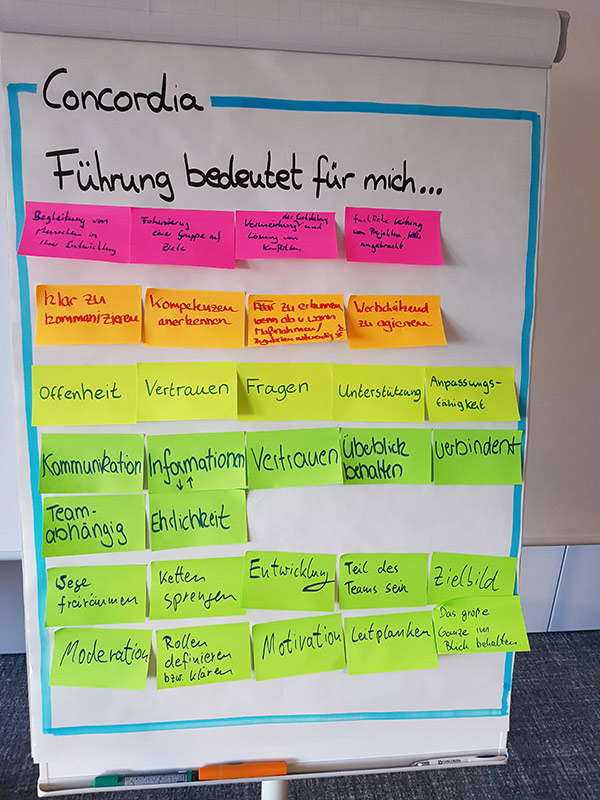 Concordia
Führung bedeutet für mich...
Begleitung von
Menschen in
Ihrer Entwicklung
Fokussierung
einer Gruppe auf
Ziele
Vermeidung und
Lösung von
Konflikten
fachliche Leitung
von Projekten,
angebracht
klar zu
kommunizieren
Kompetenzen
anerkennen
zu erkennen
wenn ab u. wann
Maßnahmen/
notwendig
Wertschätzend
zu agieren
Offenheit
Vertrauen
Fragen
Unterstützung
Anpassungs-
fähigkeit
Kommunikation
Informationen
↓↑
Vertrauen
Überblick
behalten
verbindend
Team-
abhängig
Ehrlichkeit
Wege
freiräumen
Ketten
sprengen
Entwicklung
Teil des
Teams sein
Zielbild
Moderation
Rollen
definieren
bzw. klären
Motivation
Leitplanken
Das große
Ganze im
Blick behalten.